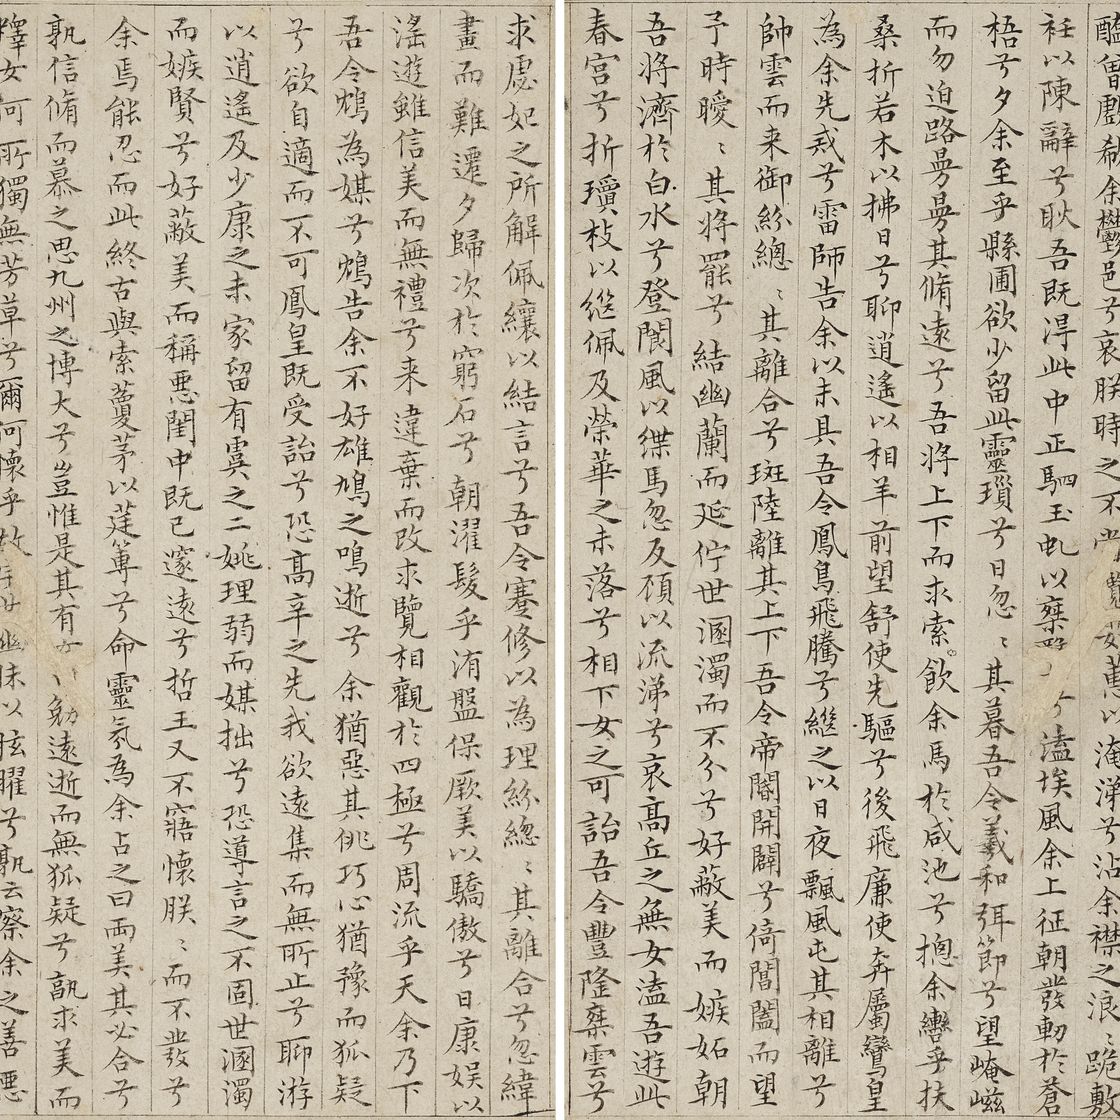 醢曾歔欷余鬱邑兮哀朕時之不當茹蕙以淹涕兮沾余襟之浪〻跪敷
衽以陳辭兮耿吾既淂此中正駟玉虬以椉兮溘埃風余上征朝發軔於蒼
梧兮夕余至乎縣圃欲少留此靈瑣兮日忽〻其暮吾令羲和弭節兮望崦嵫
而勿迫路曼曼其脩遠兮吾將上下而求索飲余馬於咸池兮摠余轡乎扶
桑折若木以拂日兮聊逍遙以相羊前望舒使先驅兮後飛廉使奔屬鸞皇
為余先戒兮雷師告余以未具吾令鳳鳥飛騰兮繼之以日夜飄風屯其相離兮
帥雲而来御紛總〻其離合兮斑陸離其上下吾令帝閽開闢兮倚閶闔而望
予時曖〻其將罷兮結幽蘭而延佇世溷濁而不分兮好蔽美而嫉妬朝
吾將濟於白水兮登閬風以緤馬忽反顧以流涕兮哀高丘之無女溘吾遊此
春宮兮折瓊枝以継佩及榮華之未落兮相下女之可詒吾令豐隆椉雲兮
求虙妃之所解佩纕以結言兮吾令蹇修以為理紛總〻其離合兮忽緯
畫而難遷夕歸次於窮石兮朝濯髮乎洧盤保厥美以驕傲兮日康娛以
滛遊雖信美而無禮兮来違棄而改求覽相觀於四極兮周流乎天余乃下
吾令鴆為媒兮鴆告余不好雄鳩之鳴逝兮余猶惡其佻巧心猶豫而狐疑
兮欲自適而不可鳳皇既受詒兮恐高辛之先我欲遠集而無所止兮聊浮游
以逍遙及少康之未家留有虞之二姚理弱而媒拙兮恐導言之不固世溷濁
而嫉賢兮好蔽美而稱惡閨中既已邃遠兮哲王又不寤懷朕〻而不發兮
余焉能忍而此終古與索藑茅以莛篿兮命靈氛為余占之曰兩美其必合兮
孰信脩而慕之思九州之博大兮豈惟是其有女勉遠逝而無狐疑兮孰求美而
釋女何所獨無芳草兮爾何懷乎故宇世幽昧以眩曜兮孰云察余之善惡